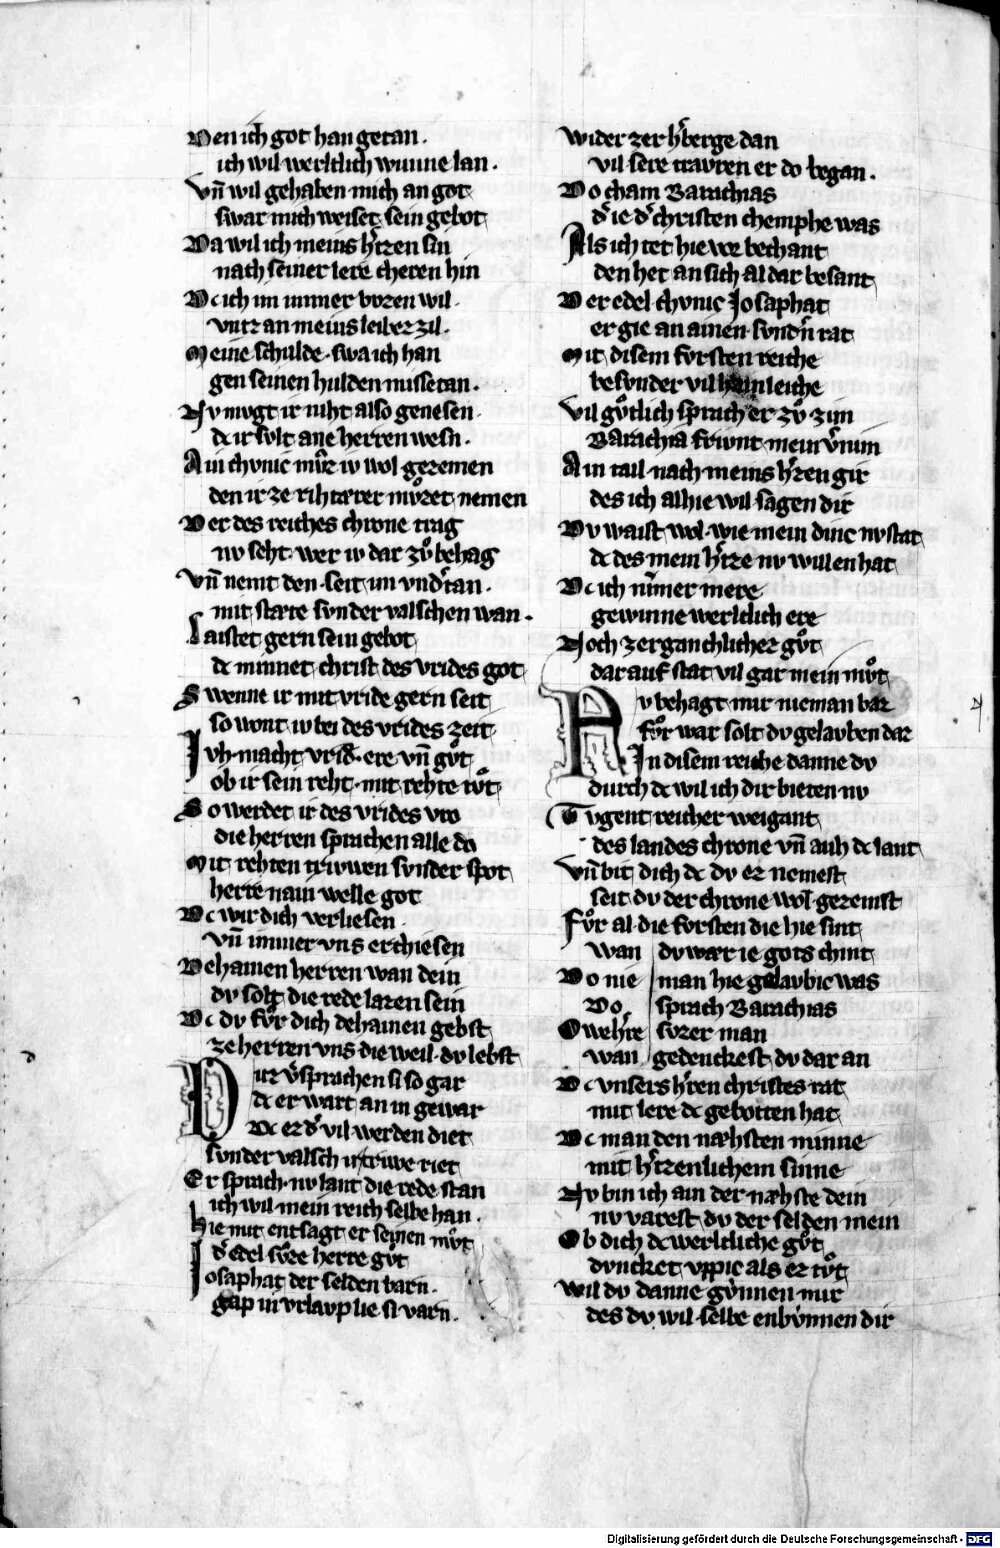 Den ich got han getan.
ich wil werltlich wunne lan.
Vn̄ wil gehaben mich an got
swar mich weiset sein gebot
Da wil ich meins h̓tzen sin
nach seiner lere cheren hin
Dc ich im immer boren wil.
vntz an meins leibez zil.
Meine schulde. swa ich han
gen seinen hulden missetan.
Nv mvgt ir niht also genesen.
dc ir svlt ane herren wesn.
Ain chvnic mvͦz iv wol gezemen
den ir ze rihtærer mvͦzet nemen
Der des reiches chrone trag
nv seht. wer iv dar zvͦ behag
Vn̄ nemt den. seit im vnd̓tan.
mit stæte svnder valschen wan.
Laistet gern sein gebot
dc minnet christ des vrides got
Swenne ir mit vride gern seit
so wont iv bei des vrides zeit
Ivh. macht vrid̓. ere vn̄ gvͦt
ob ir sein reht. mit rehte tvͦt
So werdet ir des vrides vro
die herren sprachen alle do
Mit rehten triwen svnder spot
herre nain welle got
Dc wir dich verliesen
vn̄ immer vns erchiesen
Dehainen herren wan dein
dv solt die rede lazen sein
Dc dv fvͦr dich dehainen gebst
ze herren vns die weil. dv lebst
Ditz v̓sprachen si so gar
dc er wart an in gewar
Dc er d̓ vil werden diet
svnder valsch ir triwe riet
Er sprach. nv lant die rede stan
ich wil mein reich selbe han.
Hie mit entsagt er seinen mvͦt
d̓ edel svͦze herre gvͦt
Iosaphat der selden barn.
gap in vrlavp lie si varn.
Wider zer h̓berge dan
vil sere travren er do began.
Do cham Barachias
d̓ ie d̓ christen chemphe was
Als ich tet hie vor bechant
den het an sich al dar besant
Der edel chvnic Iosaphat
er gie an ainen svnd̓n rat
Mit disem fvrsten reiche
besvnder vil hainleiche
Vil gvͦtlich sprach er zvͦ zim
Barachia frivnt mein v̓nim
Ain tail nach meins h̓zen gir
des ich alhie wil sagen dir
Dv waist wol. wie mein dinc nv stat
dc des mein h̓tze nv willen hat
Dc ich nim̓mer mere
gewinne werltlich ere
Noch zerganchlichez gvͦt
dar auf stat vil gar mein mvͦt
Nv behagt mir nieman baz
fvͦr war solt dv gelavben daz
In disem reiche danne dv
durch dc wil ich dir bieten nv
Tvgent reicher weigant
des landes chrone vn̄ auh dc lant
Vn̄ bit dich dc dv ez nemest
seit dv der chrone wol gezemst
Fvͦr al die fvrsten die hie sint
wan dv wær ie gots chint
Do nie man hie gelavbic was
Do sprach Barachias
Owe h̓re svzer man
wan gedenckest dv dar an
Dc vnsers h̓ren christes rat
mit lere dc gebotten hat
Dc man den næhsten minne
mit h̓tzenlichem sinne
Nv bin ich ain der næhste dein
nv varest dv der selden mein
Ob dich dc werltliche gvͦt
dvncket vppic als ez tvͦt
Wil dv danne gvnnen mir
des dv wil selbe enbvnnen dir
Digitalisierung gefördert durch die Deutsche Forschungsgemeinschaft - DFG